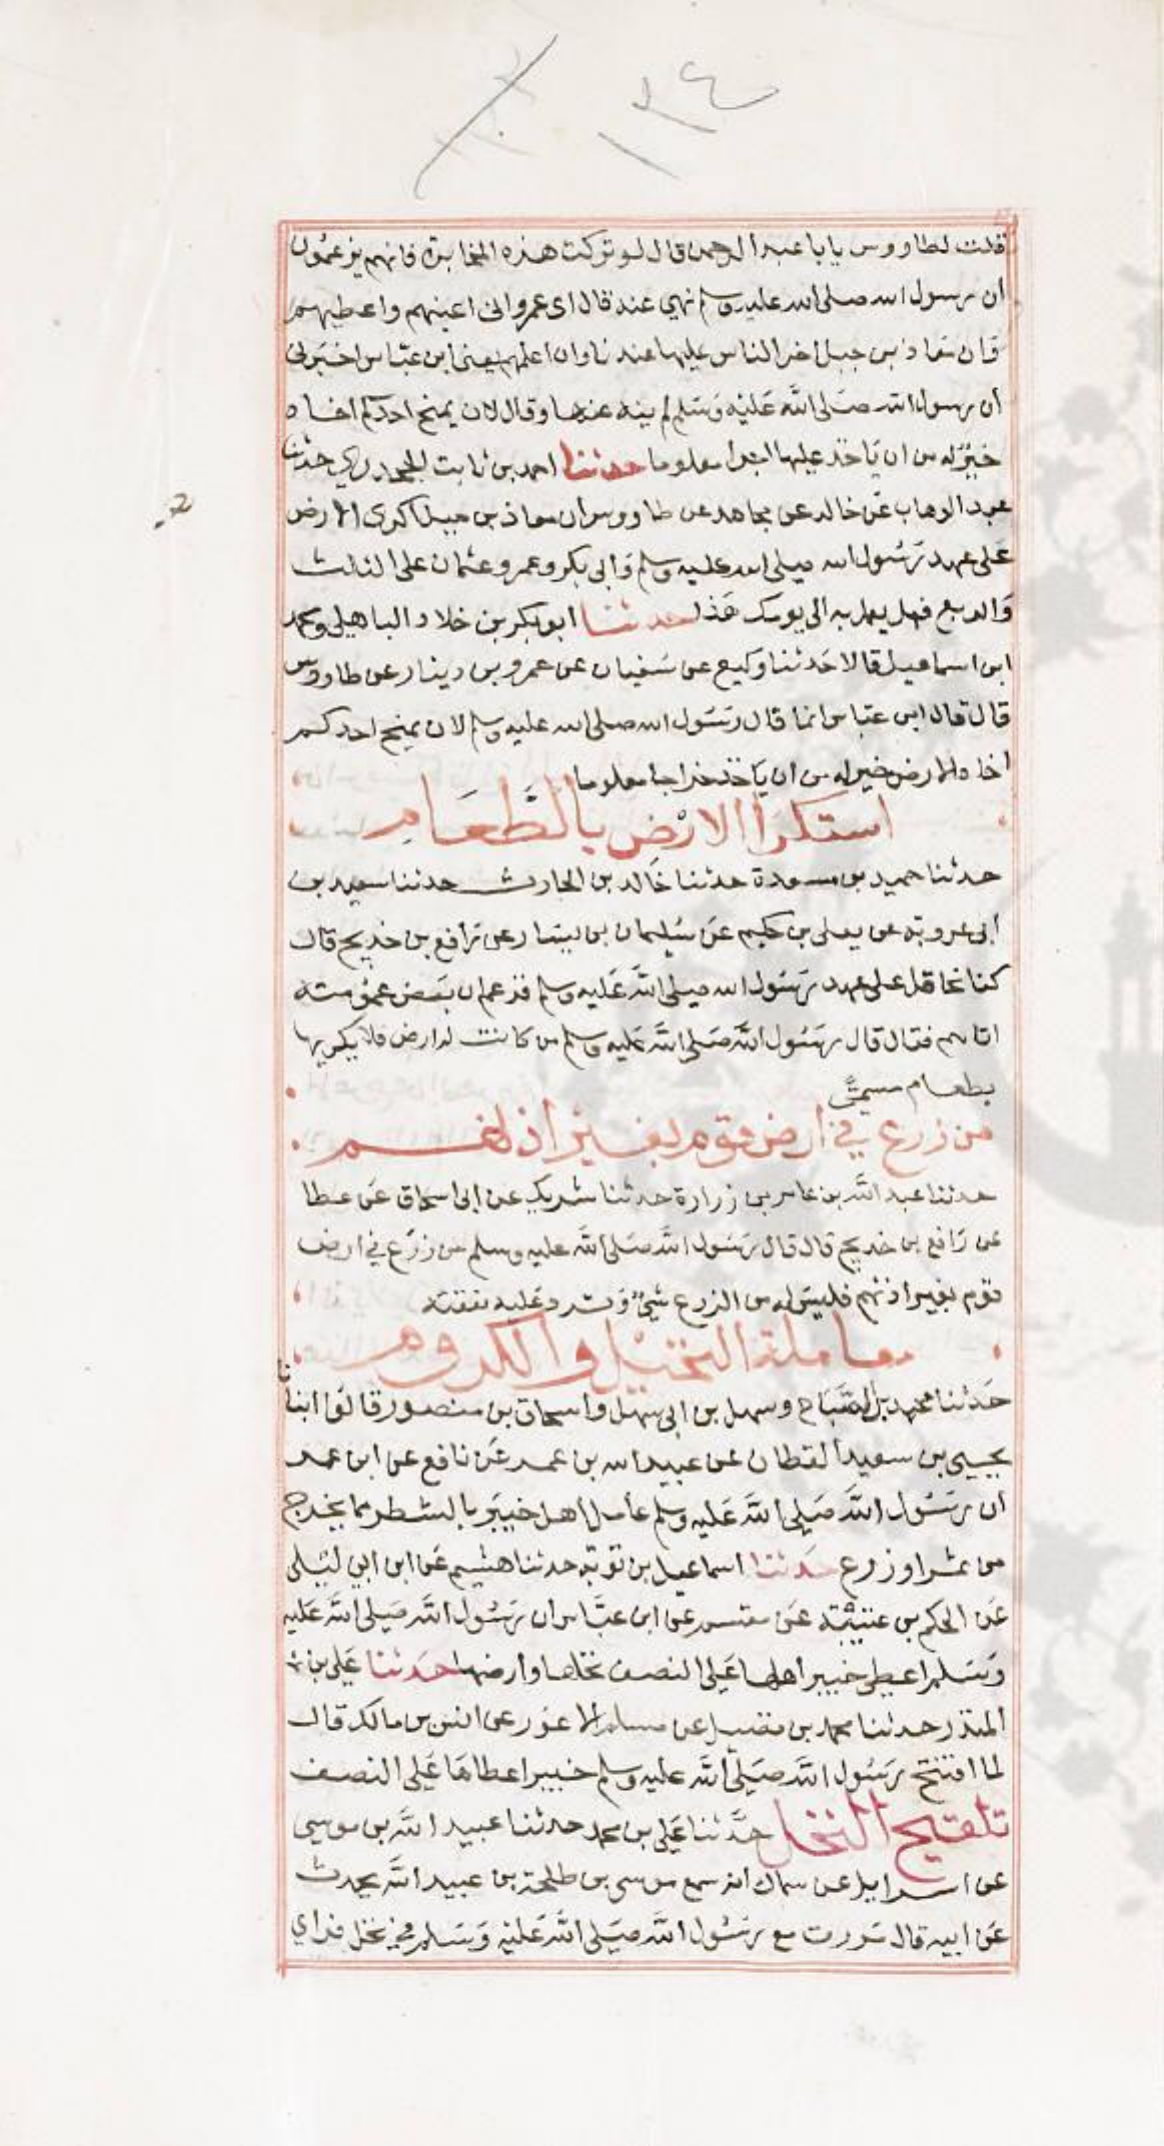 ١٣٤
قلت لطاووس يا با عبد الرحمن قال لو تركت هذه المخابرة فانهم يزعمون
ان رسول الله صلى الله عليه وسلم نهي عنه قال اى عمرو انى اعينهم واعطيهم
وان معاذ بن جبل اخذ الناس عليها عندنا وان اعلمهم يعني ابن عباس اخبرنى
أن رسول الله صَلى اللَّه عَليْه وَسَلم لم ينه عنها وقال لان يمنح احدكم اخاه
خيرٌ له من ان يَاخذ عليها اجرا معلوما حدثنا احمد بن ثابت الجحدري حدثنا
عبد الوهاب عَن خالد عن مجاهد عن طاووس ان معاذ بن جبل اكرى الارض
عَلى عهد رَسُول الله صلى الله عليه وسلم وَابى بكر وعمر وعثمان على الثلث
وَالربع فهل يعمل به الى يومك هَذا حدثنا ابو بكر بن خلاد الباهلي ومحمد
ابن اسماعيل قالا حَدثنا وكيع عن سَفيان عن عمرو بن دينار عن طاووس
قال قال ابن عبّاس انما قال رَسُول الله صلى الله عليه وسلم لان يمنح احدكم
اخاه الارض خير له من ان يَاخذ خراجا معلوما
استكرا الارْض بالطَّعَام
حدثنا حميد بن مسعدة حدثنا خَالد بن الحارث حدثنا سعيد بن
أبى عروبة عن يعلى بن حكيم عَن سُليمان بن يسَار عن رَافع بن خديج قال
كنا نحاقل على عهد رَسُول الله صلى اللَّه عَليه وسلم فزعم ان بعَض عمومته
اتاهم فقال قال رَسُول اللَّه صَلى اللَّه عَليه وسلم من كانت له ارض فلا يكريها
بطعام مسمَّى
من زرع في أرض قوم بغير اذنهم
حدثنا عبد اللَّه بن عامر بن زرارة حدثنا شريك عن ابى اسحاق عَن عطا
عن رَافع بن خديج قال قال رَسُول اللَّه صَلى اللَّه عليه وسلم من زرَع في ارض
قوم بغير اذنهم فليسَ له من الزرع شيٌ وَترد عَليه نفقته
معاملة النخيل والكروم
حَدثنا محمد بن الصَّبَاح وسهل بن ابى سَهل واسحاق بن منصور قالوا انبانا
يحيى بن سعيد القطان عن عبيد الله بن عمر عَن نافع عن ابن عمر
ان رَسُول اللَّه صَلى اللَّه عَليه وسلم عامل اهل خيبَر بالشطر مما يخرج
من ثمر او زرع حَدثنا اسماعيل بن توبة حدثنا هشيم عَن ابن ابي ليْلى
عَن الحكم بن عتيْبة عَن مقسم عن ابن عبَّاس ان رَسُول اللَّه صَلى اللَّه عَليه
وَسَلم اعطى خيبر اهلها عَلى النصف نخلها وارضها حَدثنا عَلى بن
المنذر حدثنا محمد بن فضيل عن مسلم الاعوَر عن انس بن مالك قال
لما افتتح رَسُول اللَّه صَلى اللَّه عليه وسلم خيبر اعطاهَا عَلى النصف
تلقيح النخل حدَّثنا عَلى بن محمد حدثنا عبيد اللَّه بن موسى
عن اسرايل عن سماك انه سمع موسى بن طلحة بن عبيد اللَّه يحدث
عَن ابيه قال مَررت مع رَسُول اللَّه صَلى اللَّه عَليْه وَسَلم في نخل فراي